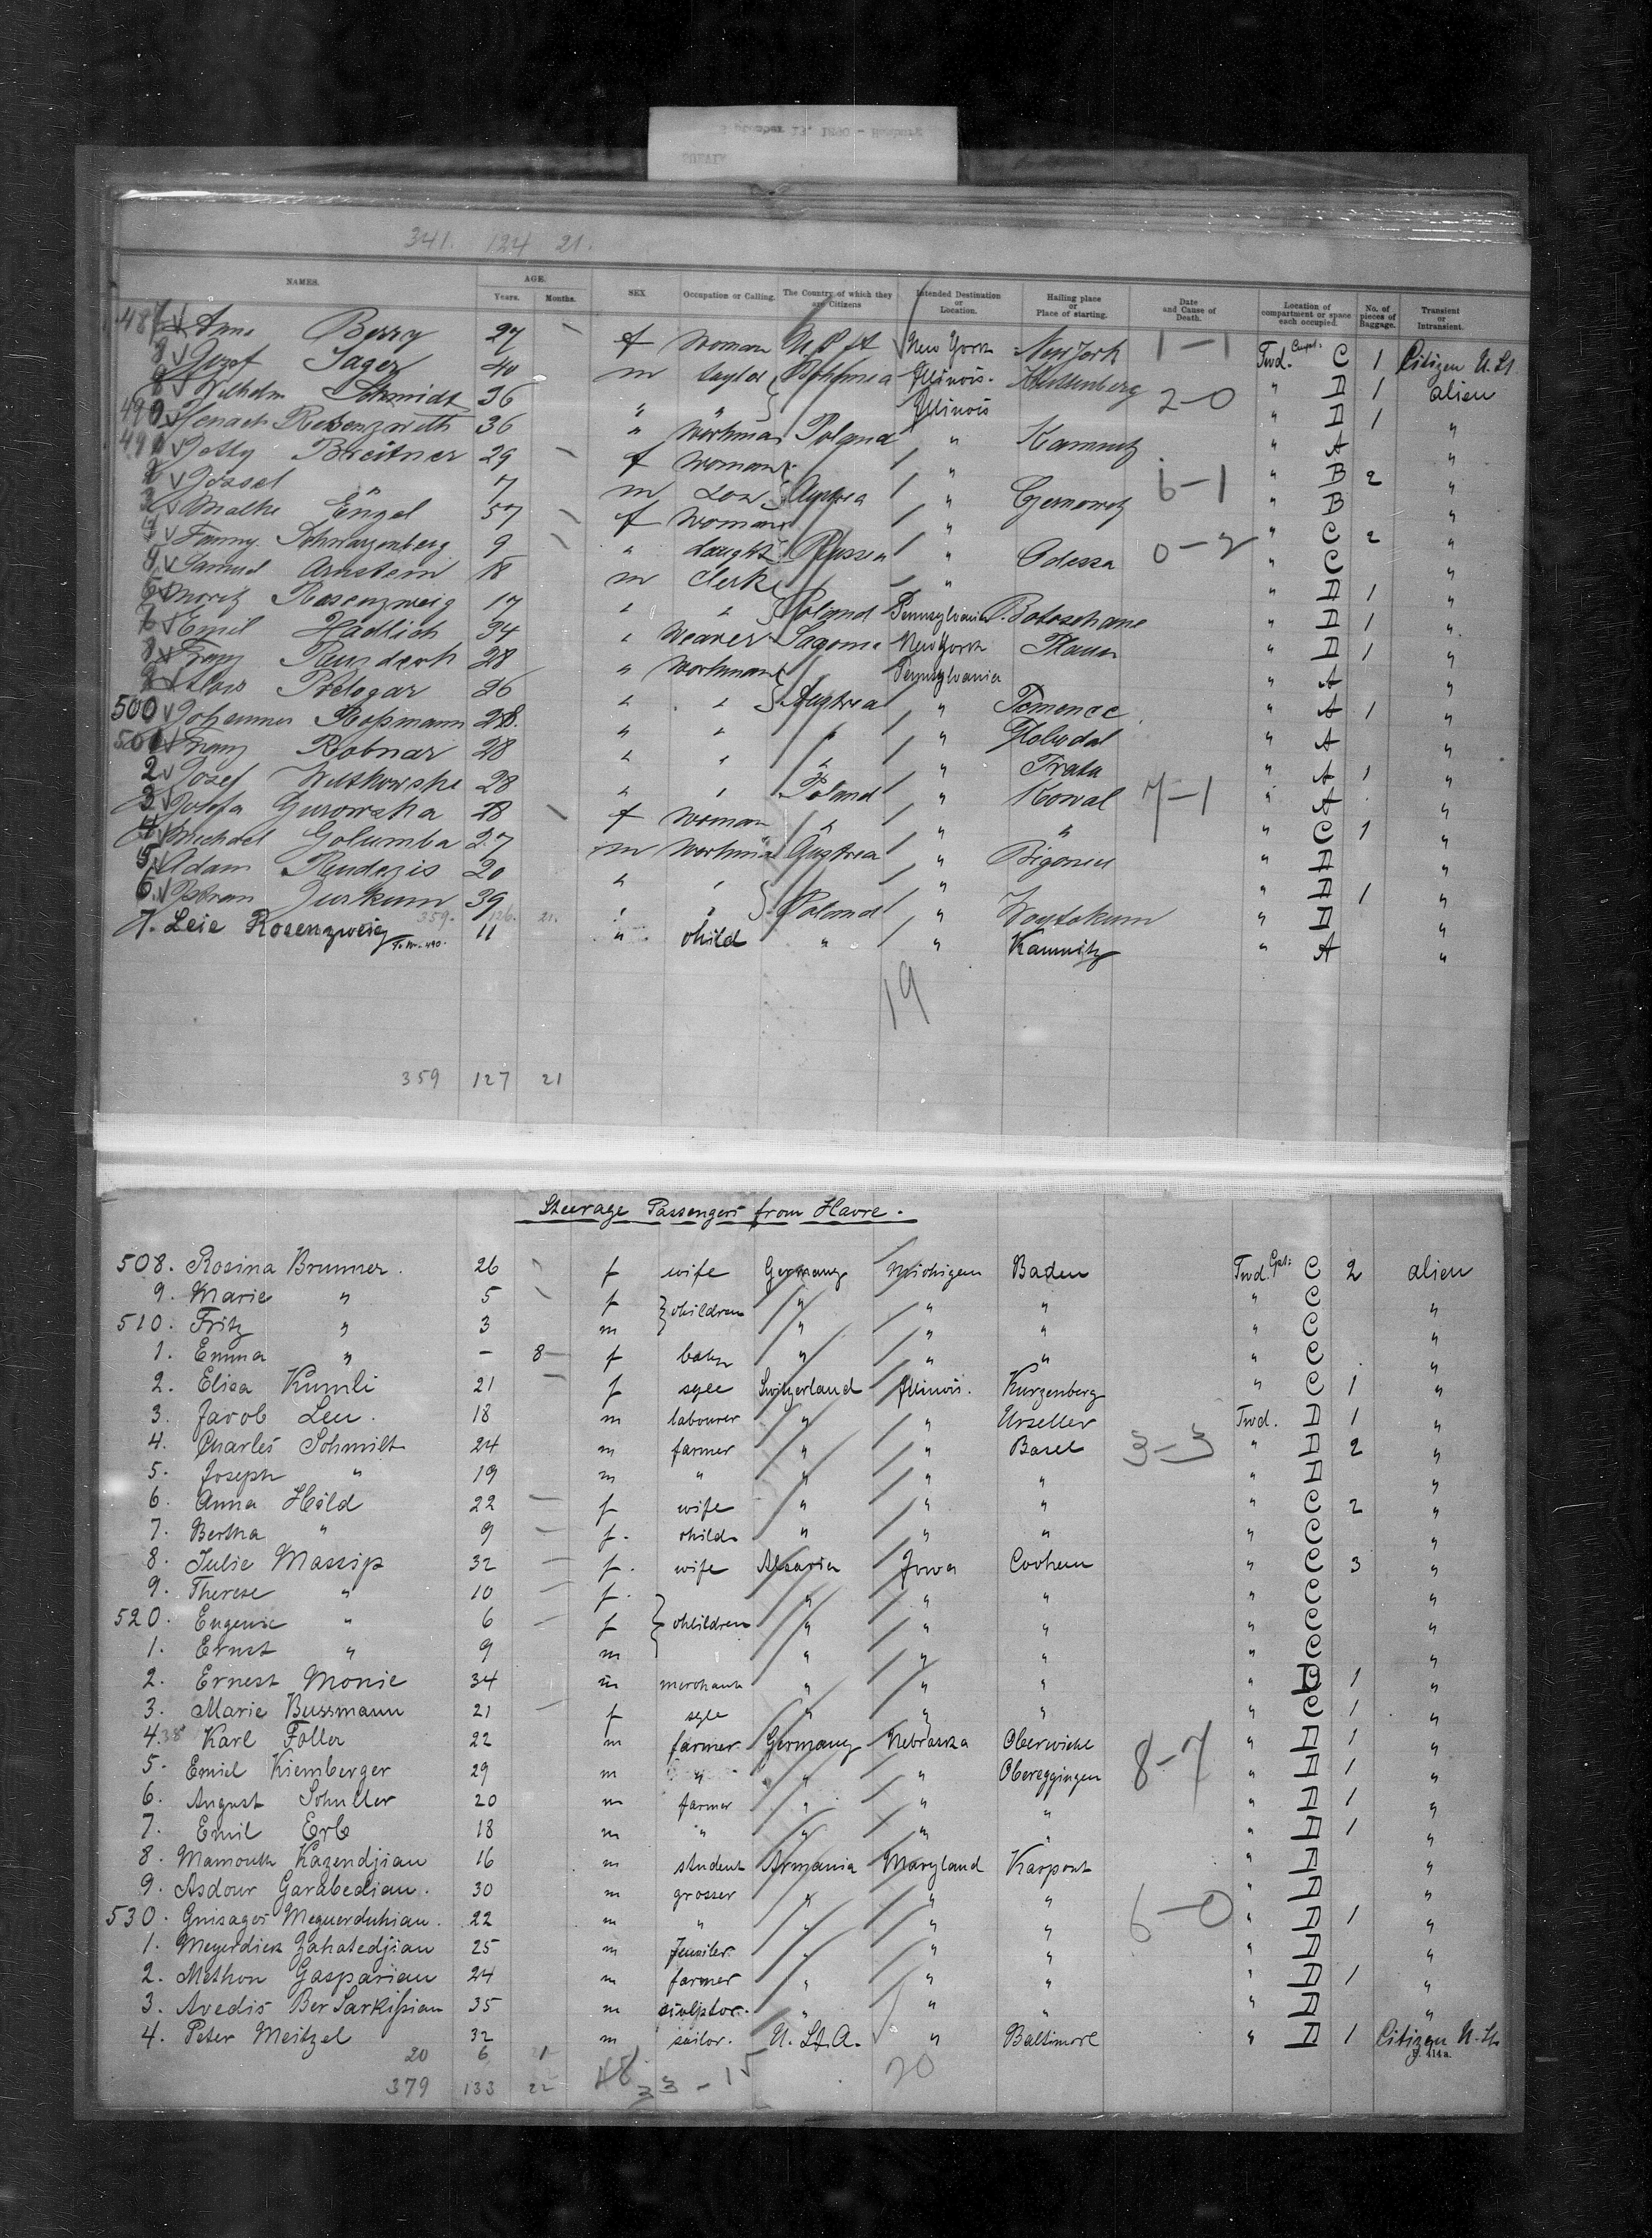 341. 124 21.
NAMES. AGE. Years. Months. SEX Occupation or Calling. The Country of which they are Citizens Intended Destination or Location. Hailing place or Place of starting. Date and Cause of Death. Location of compartment or space each occupied. No. of pieces of Baggage. Transient or Intransient.
487 Anna Berry 27 f Woman New York New York 1-1 Twd. Cupt: C 1 Citizen U. St.
8 Josef Sager 40 m Bohemia Illinois. Kuttenberg " A 1 alien
9 Wilhelm Schmidt 36 " " Illinois 2-0 " A 1 "
490 36 " Workman Poland " Kamnitz " A "
491 Jetty Breitner 29 f Woman " " B 2 "
2 Jossel " 7 m Austria " Czernowitz 6-1 " B "
3 Malke Engel 57 f Woman " " C 2 "
4 Fanny Schwarzenberg 9 " Russia " Odessa 0-2 " C "
5 Samuel Arnstein 18 m Clerk " " A 1 "
6 Moritz Rosenzweig 17 " " Poland Pennsylvania Botoschane " A 1 "
7 Emil Hadlich 34 " Weaver New York " A 1 "
8 Franz 28 " Workman Pennsylvania " A "
9 Alois Prelogar 26 " " Austria " " A 1 "
500 Johannes Roßmann 28. " " " " " A "
501 Franz Robnar 28 " " " " Trata " A 1 "
2 Josef Witkowski 28 " " Poland " Kowal 7-1 " A "
3 Gurowska 28 f Woman " " " " C 1 "
4 Michael Golumba 27 m Workman Austria " " A "
5 Adam 20 " " " A 1 "
6. 39 " " Poland " " A "
7. Leie Rosenzweig To Nr. 490. 11 " child " " Kamnitz " A "
359. 126. 21.
19
359 127 21
Steerage Passengers from Havre.
508. Rosina Brunner. 26 f wife Germany Michigan Baden Twd. Cpt: C 2 alien
9. Marie " 5 f children " " " " C "
510. Fritz " 3 m " " " " C "
1. Emma " - 8 f baby " " " " C "
2. Elisa Kumli 21 f sgle Switzerland Illinois. Kurzenberg " C 1 "
3. Jacob Leu. 18 m labourer " " Urseller Twd. A 1 "
4. Charles Schmilt 24 m farmer " " Basel 3-3 " A 2 "
5. Joseph " 19 m " " " " " A "
6. Anna Hold 22 f wife " " " " C 2 "
7. Bertha " 9 f. child " " " " C "
8. Julie Massip 32 f. wife Alsacia Iowa Cochem " C 3 "
9. Therese " 10 f. " " " " C "
520. Eugenie " 6 f children " " " " C "
1. Ernst " 9 m " " " " C "
2. Ernest Monie 34 m merchant " " " " 1 "
3. Marie Bussmann 21 f sgle " " " " C 1 "
4. 38 Karl Foller 22 m farmer. Germany Nebraska Oberwiehl " A 1 "
5. Emiel Kiemberger 29 m " " " Obereggingen 8-7 " A 1 "
6. August Schuller 20 m farmer " " " " A 1 "
7. Emil Erb 18 m " " " " " A 1 "
8. Mamouk Kazendjian 16 m student Armania Maryland Karpont " A "
9. Asdour Garabedian. 30 m grosser " " " 6-0 " A "
530. Gnisages Meguerduhian. 22 m " " " " " A 1 "
1. Meyerdick Zahatedjian 25 m Jeweler. " " " " A "
2. Methon Gasparian 24 m farmer " " " " A 1 "
3. Avedis Ber Sarkißian 35 m sculptor. " " " " A "
4. Peter Meitzel 32 m sailor. U. St. A. " Baltimore " A 1 Citizen U. St.
20 6 1
379 133 22 48 33-15 20